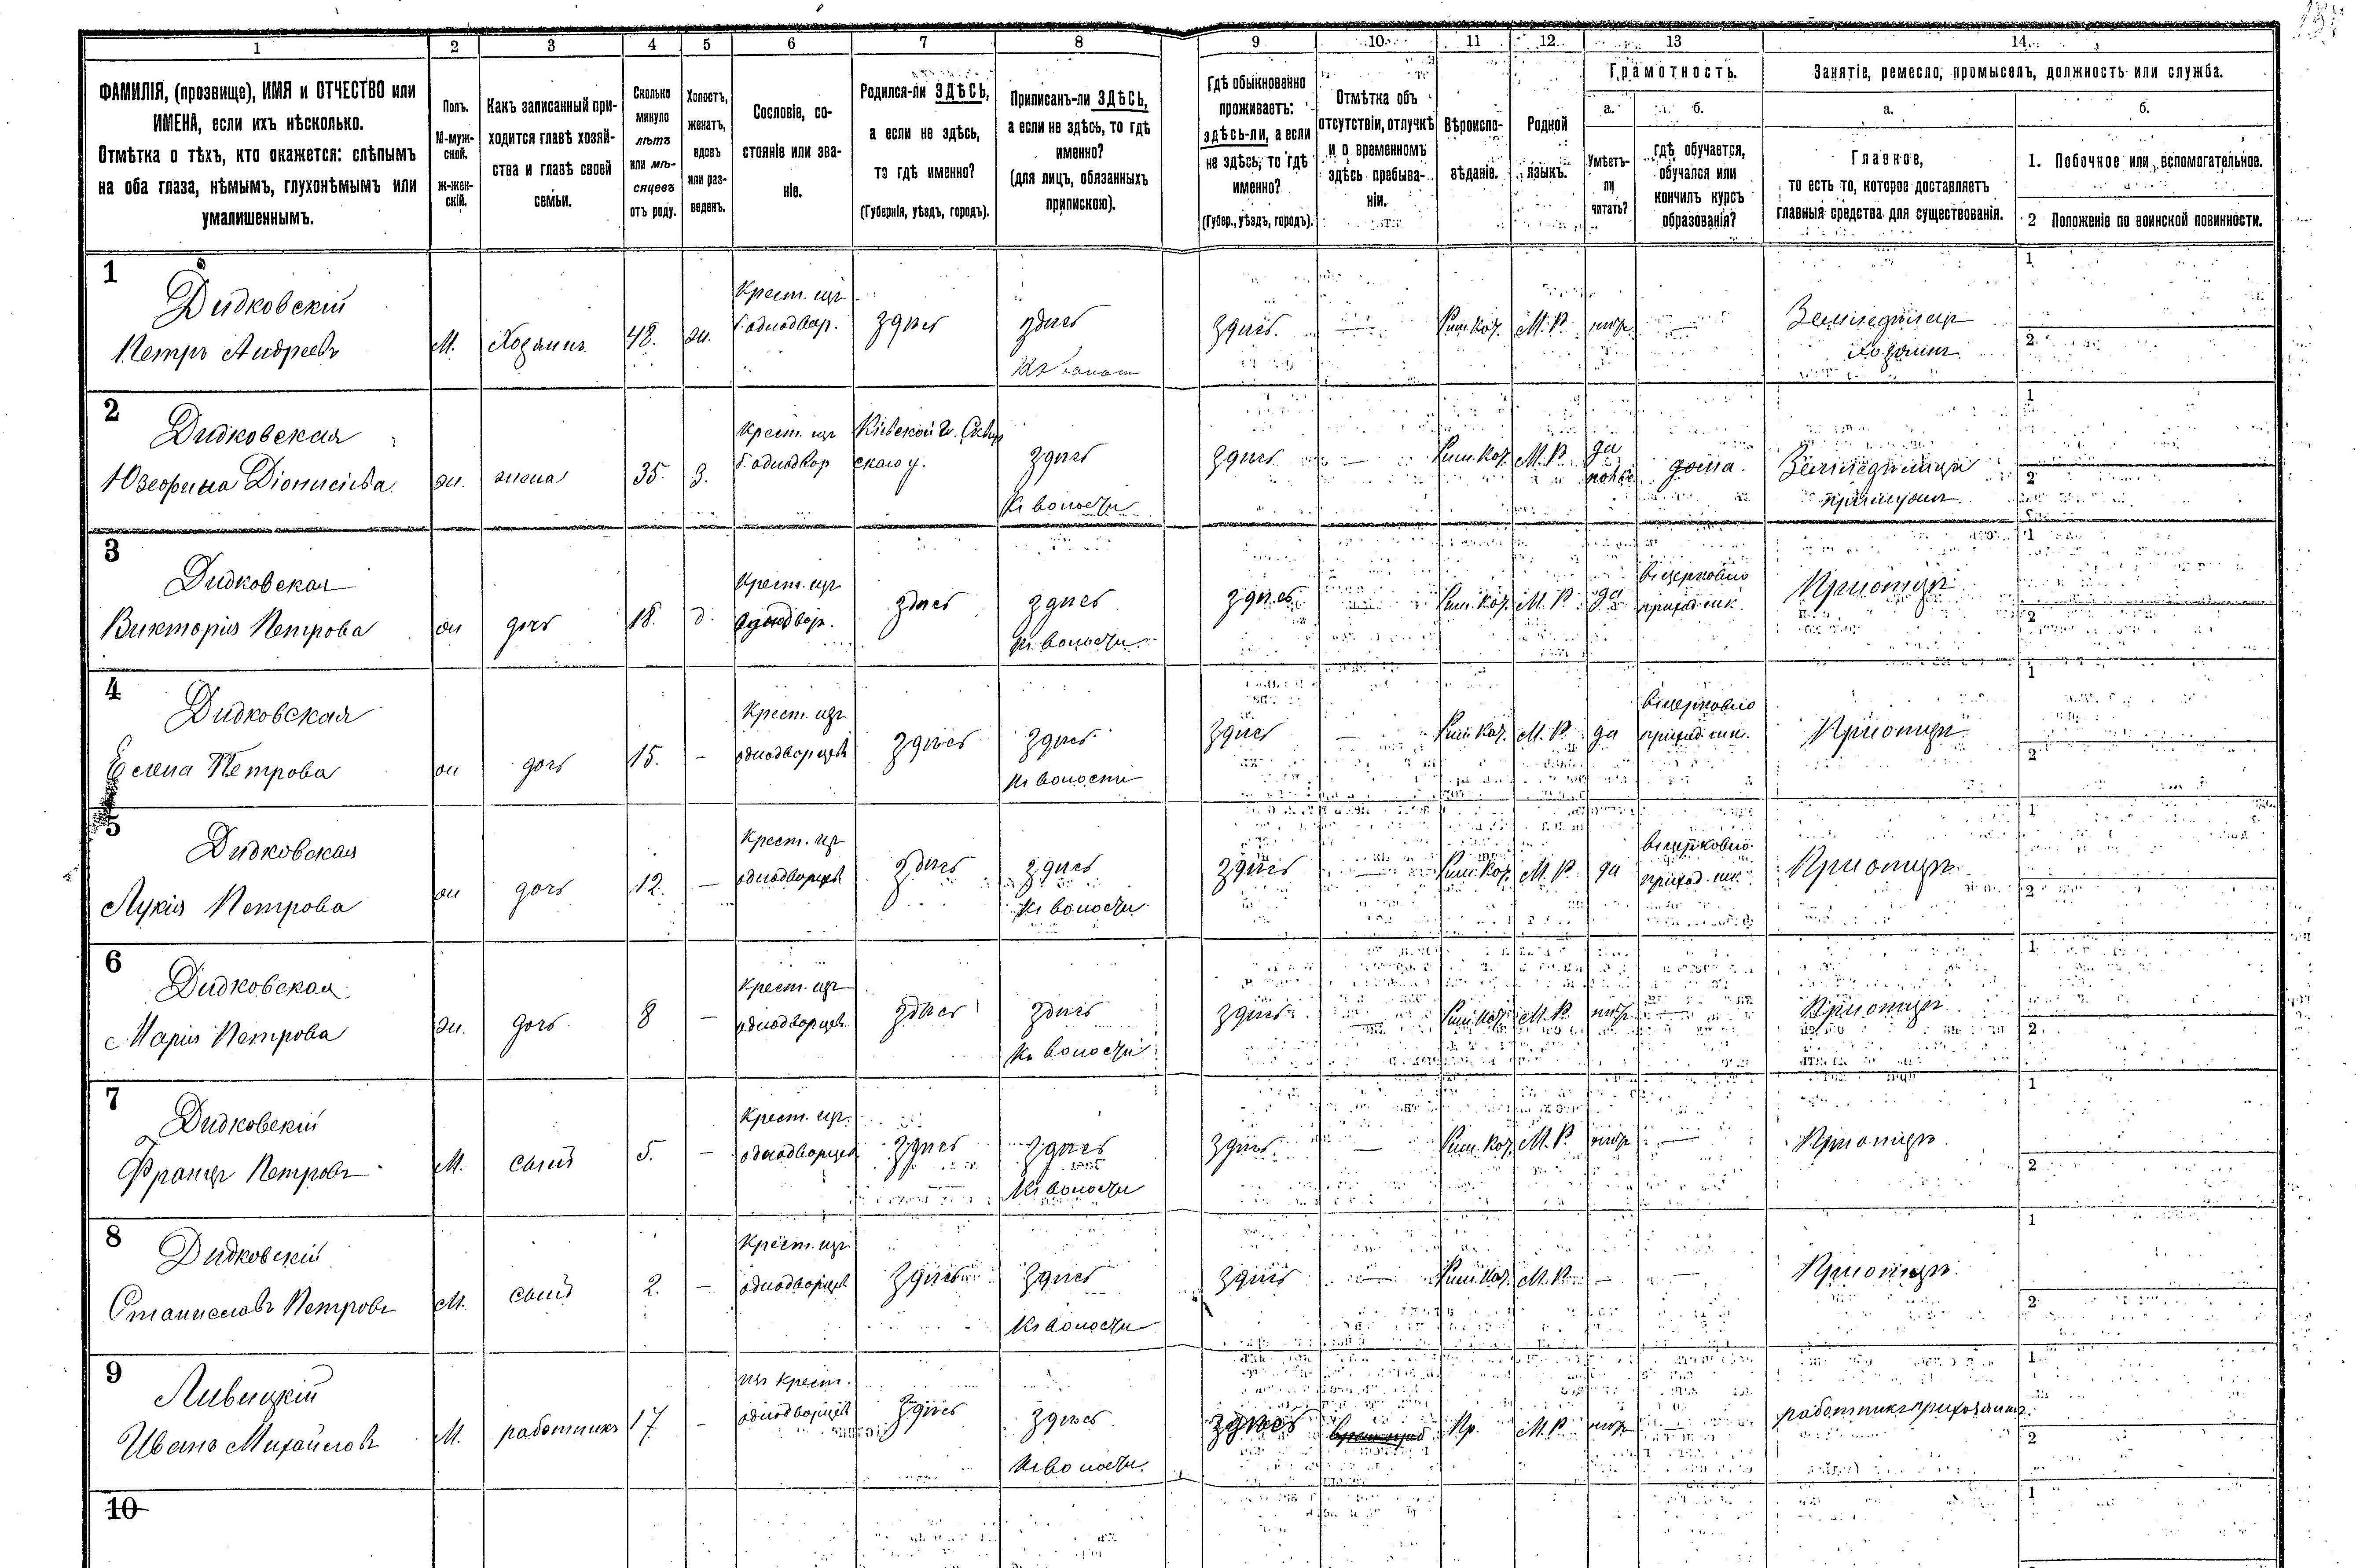 1 2 3 4 5 6 7 8 9 10 11 12 13 14
ФАМИЛІЯ, (прозвище), ИМЯ и ОТЧЕСТВО или
ИМЕНА, если ихъ нѣсколько.
Отмѣтка о тѣхъ, кто окажется: слѣпымъ
на оба глаза, нѣмымъ, глухонѣмымъ или
умалишеннымъ.
Полъ.
М-муж-
ской.
ж-жен-
скій.
Какъ записанный при-
ходится главѣ хозяй-
ства и главѣ своей
семьи.
Сколько
минуло
лѣтъ
или мѣ-
сяцевъ
отъ роду.
Холостъ,
женатъ,
вдовъ
или раз-
веденъ.
Сословіе, со-
стояніе или зва-
ніе.
Родился-ли ЗДѢСЬ,
а если не здѣсь,
то гдѣ именно?
(Губернія, уѣздъ, городъ).
Приписанъ-ли ЗДѢСЬ,
а если не здѣсь, то гдѣ
именно?
(для лицъ, обязанныхъ
припискою).
Гдѣ обыкновенно
проживаетъ:
здѣсь-ли, а если
не здѣсь, то гдѣ
именно?
(Губер., уѣздъ, городъ).
Отмѣтка объ
отсутствіи, отлучкѣ
и о временномъ
здѣсь пребыва-
ніи.
Вѣроиспо-
вѣданіе.
Родной
языкъ.
Грамотность.
а.
Умѣетъ-
ли
читать?
б.
гдѣ обучается,
обучался или
кончилъ курсъ
образованія?
Занятіе, ремесло, промыселъ, должность или служба.
а.
Главное,
то есть то, которое доставляетъ
главныя средства для существованія.
б.
1. Побочное или вспомогательное.
2 Положеніе по воинской повинности.
1
Дидковскій
Петръ Андреевъ
М. Хозяинъ 48. ж.
Крест. изъ
однодвор.
здѣсь здѣсь
здѣсь. — Рим. Кат. М. Р. нѣтъ —
Земледѣлецъ
хозяинъ
1
2
2
Дидковская
Юзефина Діонисіева
ж. жена 35. З.
Крест. изъ
однодвор
Кіевской г. Сквир
скаго у.
здѣсь
къ волости
здѣсь — Рим. Кат. М. Р.
да
дома.
Земледѣлица
1
2
3
Дидковская
Викторія Петрова
ж дочь 18. д.
Крест. изъ
однодвор.
здѣсь здѣсь
къ волости
здѣсь — Рим. Кат. М. Р. да
въ церковно
приход. шк.
При отцѣ
1
2
4
Дидковская
Елена Петрова
ж дочь 15. —
Крест. изъ
однодворцевъ
здѣсь здѣсь
къ волости
здѣсь — Рим. Кат. М. Р. да
въ церковно
приход. шк.
При отцѣ
1
2
5
Дидковская
Лукія Петрова
ж дочь 12. —
Крест. изъ
однодворцевъ
здѣсь здѣсь
къ волости
здѣсь — Рим. Кат. М. Р. да
въ церковно
приход. шк.
При отцѣ
1
2
6
Дидковская
Марія Петрова
ж. дочь 8 —
Крест. изъ
однодворцевъ
здѣсь здѣсь
къ волости
здѣсь — Рим. Кат. М. Р. нѣтъ —
При отцѣ
1
2
7
Дидковскій
Францъ Петровъ
М. сынъ 5. —
Крест. изъ
однодворцевъ
здѣсь здѣсь
къ волости
здѣсь — Рим. Кат. М. Р. нѣтъ —
При отцѣ.
1
2
8
Дидковскій
Станиславъ Петровъ
М. сынъ 2. —
Крест. изъ
однодворцевъ
здѣсь здѣсь
къ волости
здѣсь — Рим. Кат. М. Р. — —
При отцѣ.
1
2
9
Ливицкій
Иванъ Михайловъ
М. работникъ 17 —
изъ крест.
однодворцевъ
здѣсь здѣсь.
къ волости
здѣсь Пр. М. Р. нѣтъ —
работникъ при хозяинѣ
1
2
10
1